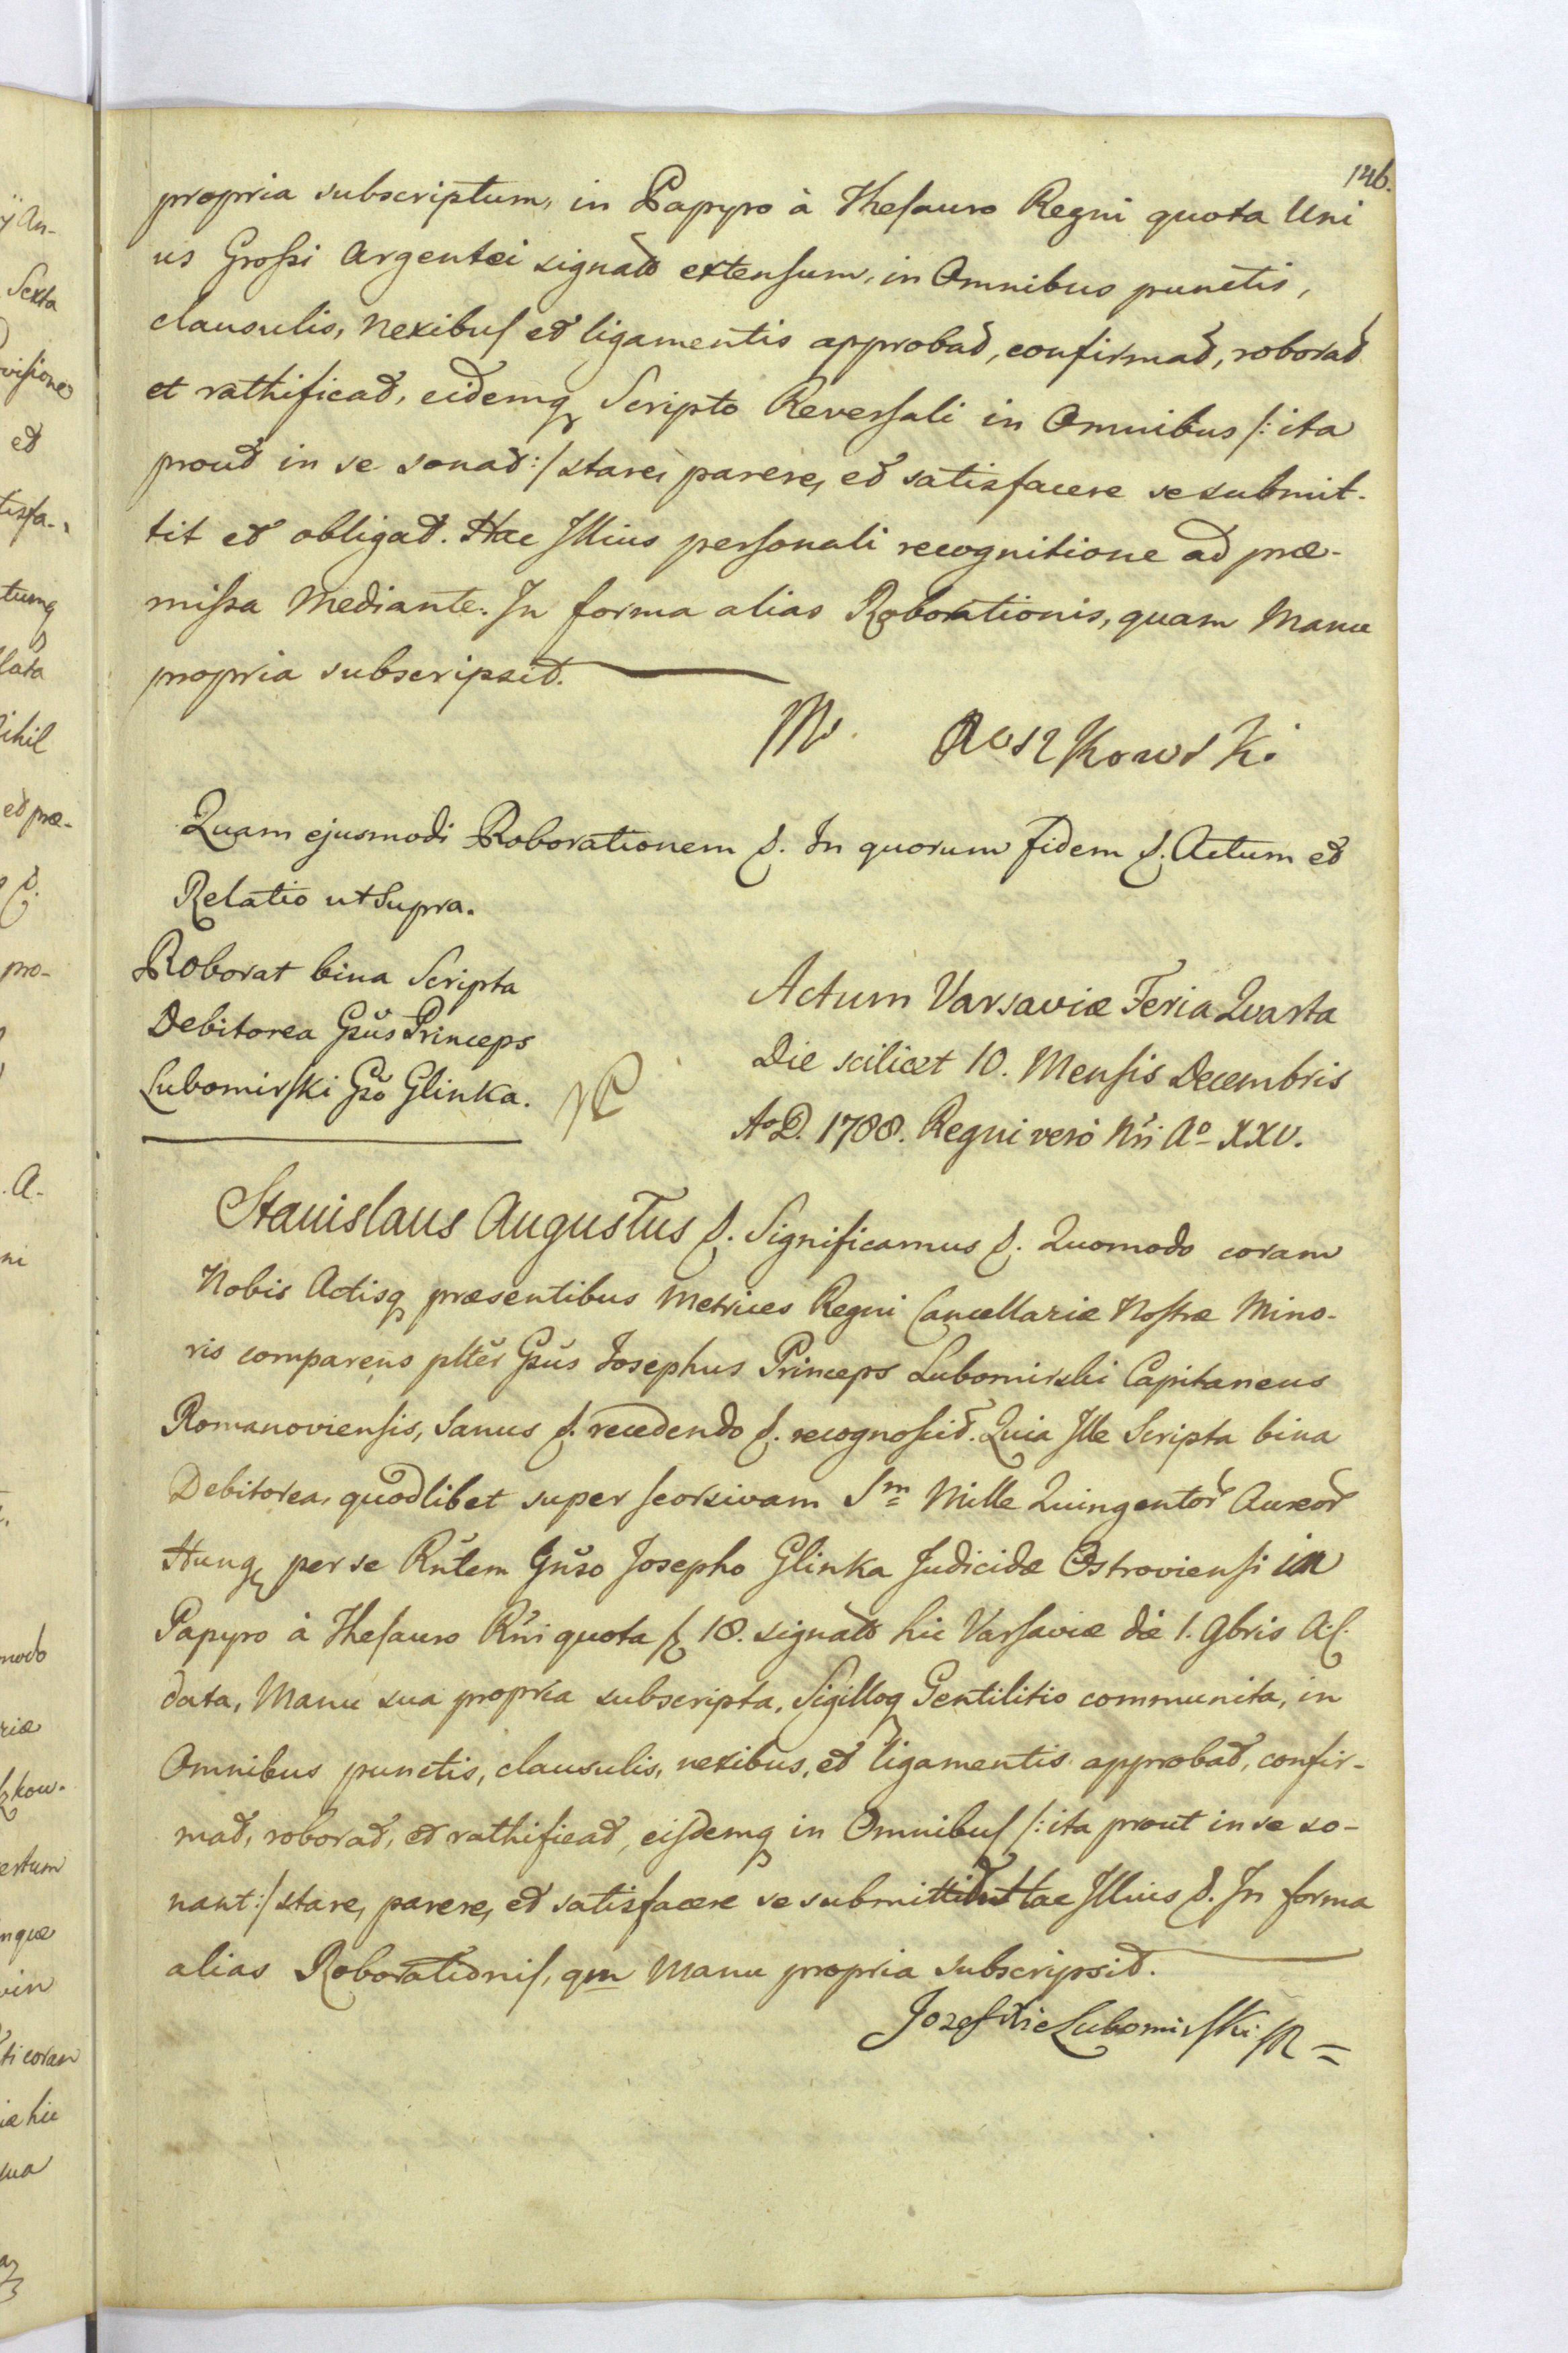 146.
propria subscriptum, in Papyro à Thesauro Regni quota Uni
us Grossi Argentei signato extensum, in Omnibus punctis,
clausulis, Nexibus et ligamentis approbat, confirmat, roborat
et rathificat, eidemq Scripto Reversali in Omnibus /: ita
prout in se sonat :/ stare, parere, et satisfacere se submit-
tit et obligat. Hac Illius personali recognitione ad præ-
missa Mediante. In forma alias Roborationis, quam Manu
propria subscripsit.
Quam ejusmodi Roborationem &. In quorum fidem &. Actum et
Relatio ut Supra.
Roborat bina Scripta
Debitorea Gsus Princeps
Lubomirski Gso Glinka.
Actum Varsaviæ Feria Quarta
Die scilicet 10. Mensis Decembris
AoD. 1788. Regni vero Nri Ao XXV.
Stanislaus Augustus &. Significamus &. Quomodo coram
Nobis Actisq præsentibus Metrices Regni Cancellariæ Nostræ Mino-
ris comparens plter Gsus Josephus Princeps Lubomirski Capitaneus
Romanoviensis, Sanus &. recedendo &. recognoscit. Quia Ille Scripta bina
Debitorea, quodlibet super seorsivam Sm Mille Quingentor Aureor
Hung, per se Rntem Gnso Josepho Glinka Judicidæ Ostroviensi in
Papyro à Thesauro Rni quota f 18. signato hic Varsaviæ die 1. 9bris A.C.
data, Manu sua propria subscripta, Sigilloq Gentilitio communita, in
Omnibus punctis, clausulis, nexibus, et ligamentis approbat, confir-
mat, roborat, et rathificat, eisdemq in Omnibus /: ita prout in se so-
nant :/ stare, parere, et satisfacere se submittit Hac Illius &. In forma
alias Roborationis, qm Manu propria subscripsit.
Jozef Xie Lubomirski